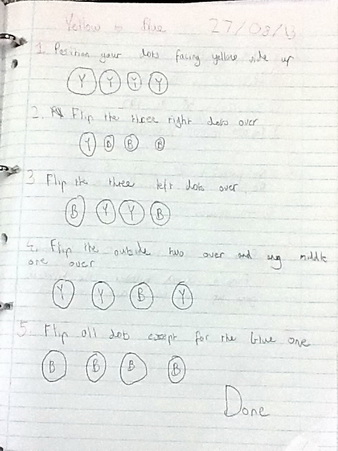 Yellow to Blue 27/03/13
1. Position your dots facing yellow side up
Y Y Y Y
2. Flip the three right dots over
Y B B B
3 Flip the three left dots over
B Y Y B
4. Flip the outside two over and any middle
one over
Y Y B Y
5. Flip all dots except for the blue one
B B B B
Done